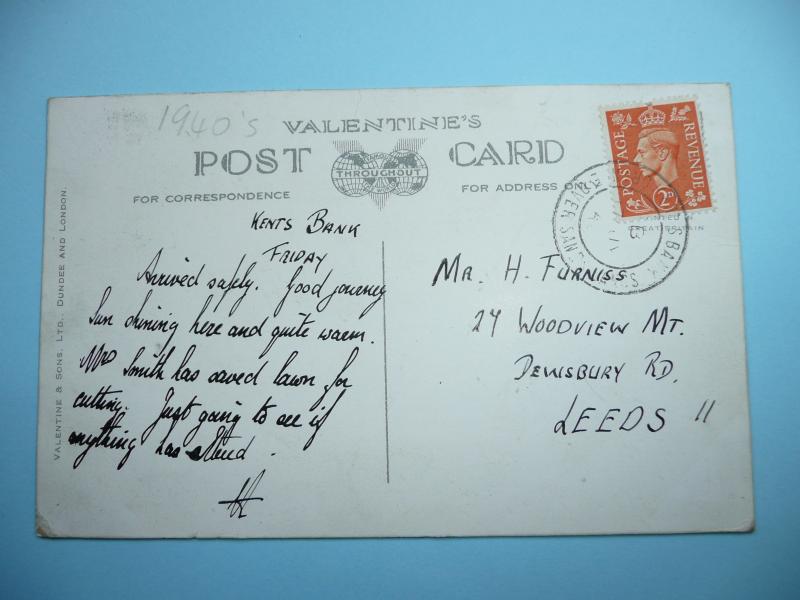 1940's
VALENTINE'S
POST CARD
THROUGHOUT
FOR CORRESPONDENCE
FOR ADDRESS ON
POSTAGE REVENUE
2D
GREAT BRITAIN
OVER SAN
S BANK
VALENTINE & SONS, LTD., DUNDEE AND LONDON.
KENTS BANK
FRIDAY
Arrived safely. Good journey
Sun shining here and quite warm.
Mrs Smith has saved lawn for
cutting. Just going to see if
anything has
MR. H. FURNISS
27 WOODVIEW MT.
DEWSBURY RD.
LEEDS 11